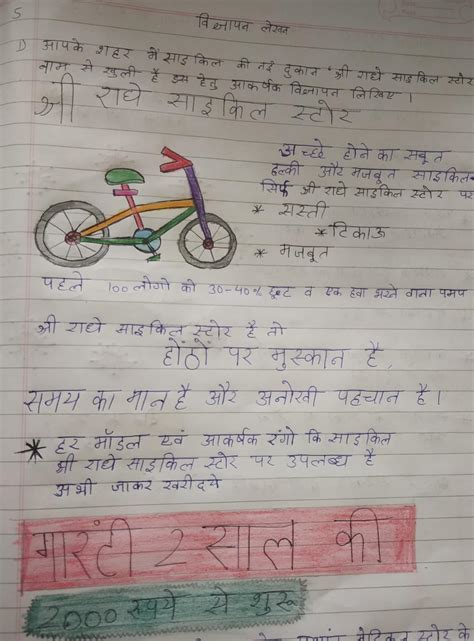 5
विज्ञापन लेखन
1) आपके शहर में साइकिल की नई दुकान 'श्री राधे साइकिल स्टोर
नाम से खुली है इस हेतु आकर्षक विज्ञापन लिखिए।
श्री राधे साइकिल स्टोर
अच्छे होने का सबूत
हल्की और मजबूत साइकिल
सिर्फ श्री राधे साइकिल स्टोर पर
* सस्ती
* टिकाऊ
* मजबूत
पहले 100 लोगो को 30-40% छूट व एक हवा भरने वाला पमप
श्री राधे साइकिल स्टोर है तो
होंठों पर मुस्कान है,
समय का मान है और अनोखी पहचान है।
* हर मॉडल एवं आकर्षक रंगो कि साइकिल
श्री राधे साइकिल स्टोर पर उपलब्ध है
अभी जाकर खरीदये
गारंटी 2 साल की
2000 रुपये से शुरू
स्टोर के